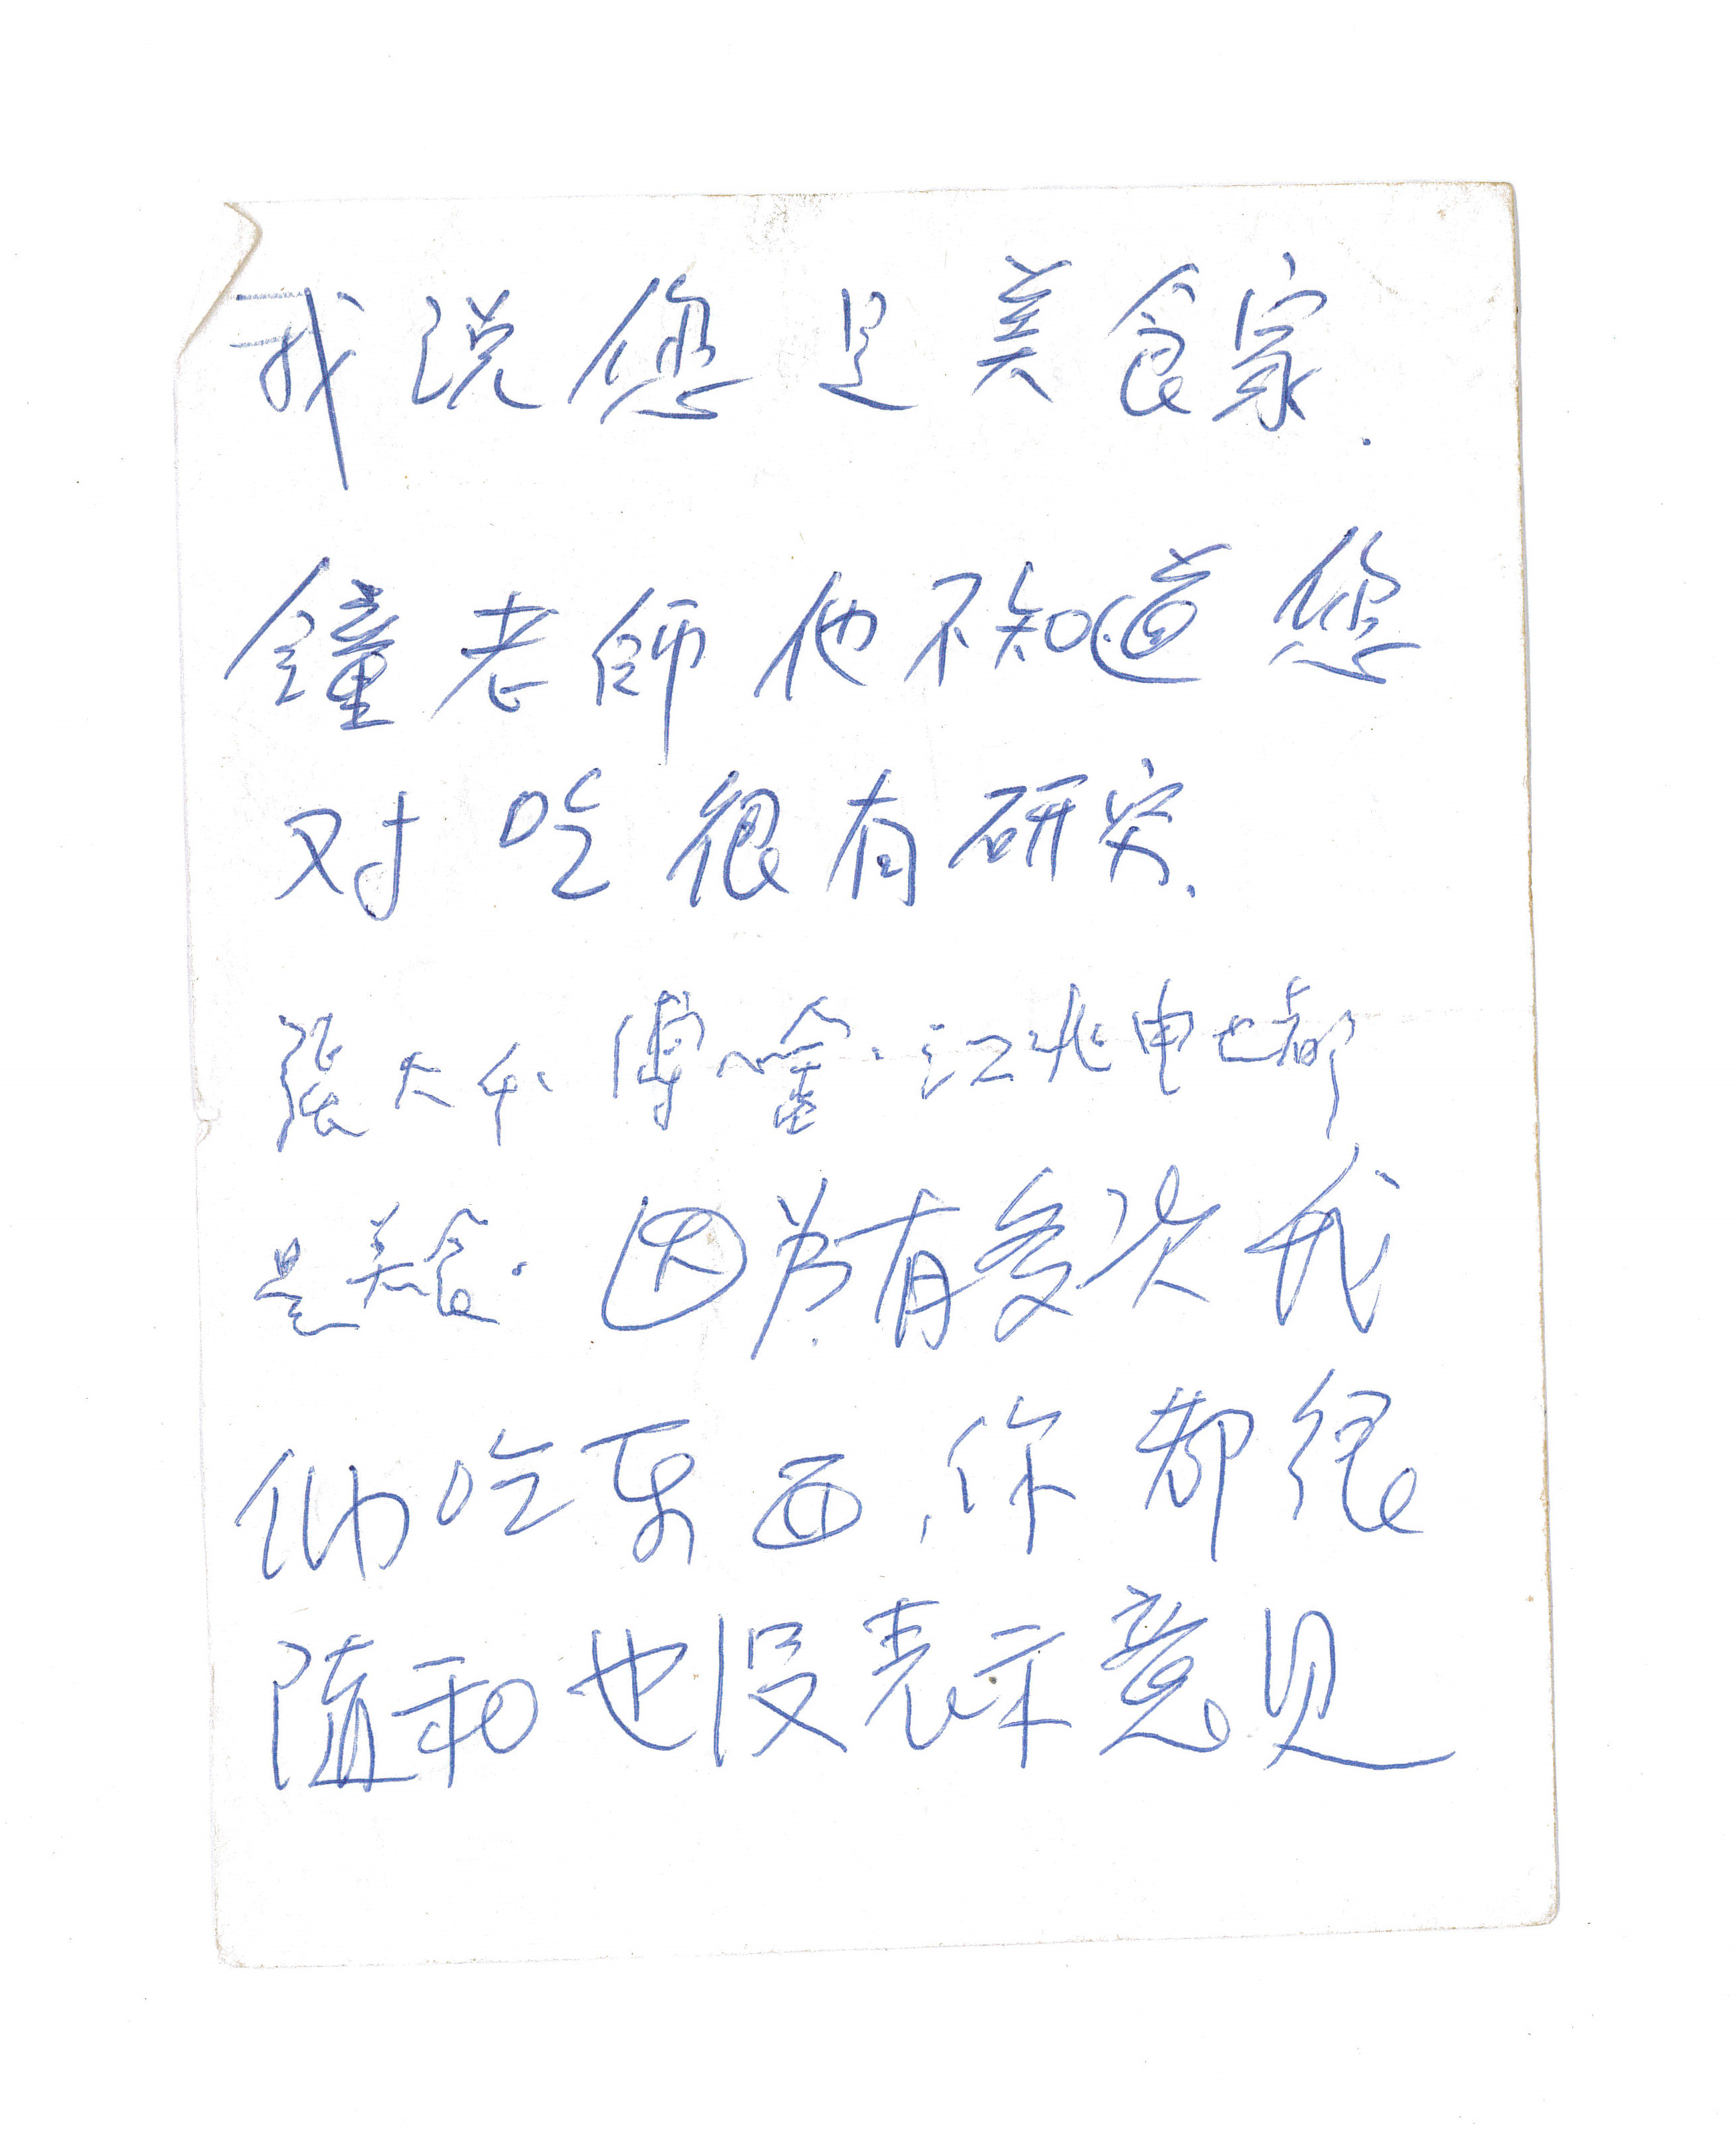 我说您是美食家.
鐘老師他不知道您
对吃很有研究.
張大千、傅心畬、江兆申也都
是美食. 因为有多次我
们吃东西,你都很
随和也没表示意见